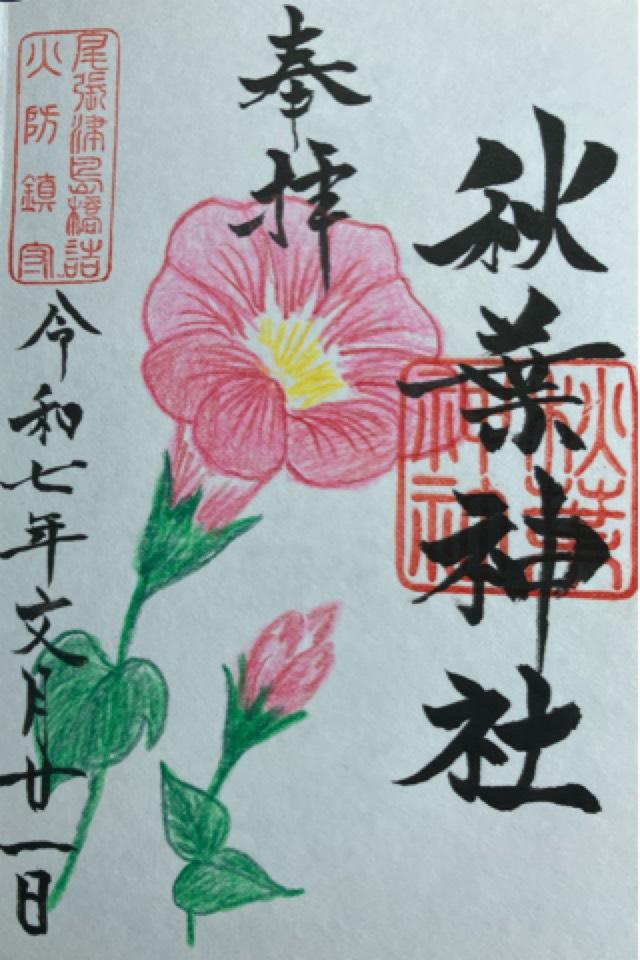 奉拝
秋葉神社
秋葉
神社
尾張津島橋詰
火防鎮守
令和七年文月廿一日